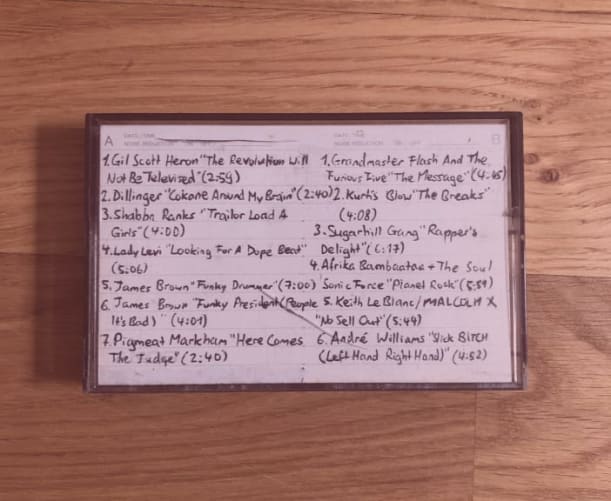 A
DATE/TIME
NOISE REDUCTION
1. Gil Scott Heron "The Revolution Will
Not Be Televised" (2:59)
2. Dillinger "Cokane Around My Brain" (2:40)
3. Shabba Ranks "Trailor Load A
Girls" (4:00)
4. Lady Levi "Looking For A Dope Beat"
(5:06)
5. James Brown "Funky Drummer" (7:00)
6. James Brown "Funky President (People
It's Bad)" (4:01)
7. Pigmeat Markham "Here Comes
The Judge" (2:40)
B
DATE/TIME
NOISE REDUCTION
1. Grandmaster Flash And The
Furious Five "The Message"
2. Kurtis Blow "The Breaks"
(4:08)
3. Sugarhill Gang "Rapper's
Delight" (6:17)
4. Afrika Bambaataa + The Soul
Sonic Force "Planet Rock" (5:59)
5. Keith Le Blanc/MALCOLM X
"No Sell Out" (5:44)
6. André Williams "Slick BITCH
(Left Hand Right Hand)" (4:52)